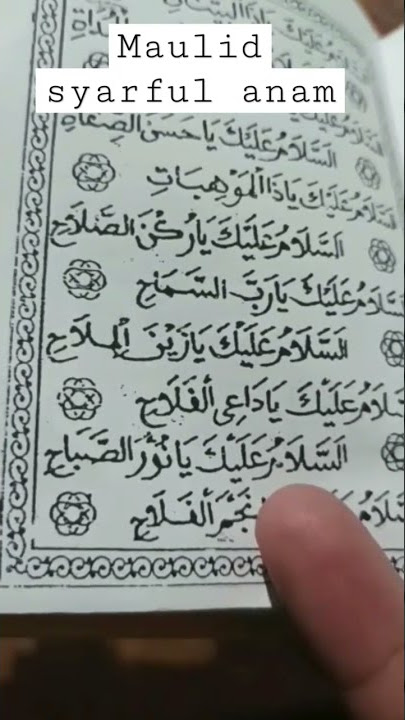 Maulid
syarful anam
اَلسَّلَامُ عَلَيْكَ يَا حَسَنَ الصِّفَاةِ
اَلسَّلَامُ عَلَيْكَ يَاذَا الْمَوْهِبَاتِ
اَلسَّلَامُ عَلَيْكَ يَارُكْنَ الصَّلَاحِ
سَّلَامُ عَلَيْكَ يَارَبَّ السَّمَاحِ
اَلسَّلَامُ عَلَيْكَ يَازَيْنَ الْمِلَاحِ
سَّلَامُ عَلَيْكَ يَادَاعِى الْفَلَاحِ
اَلسَّلَامُ عَلَيْكَ يَانُوْرَ الصَّبَاحِ
نَجْمَ الْفَلَاحِ